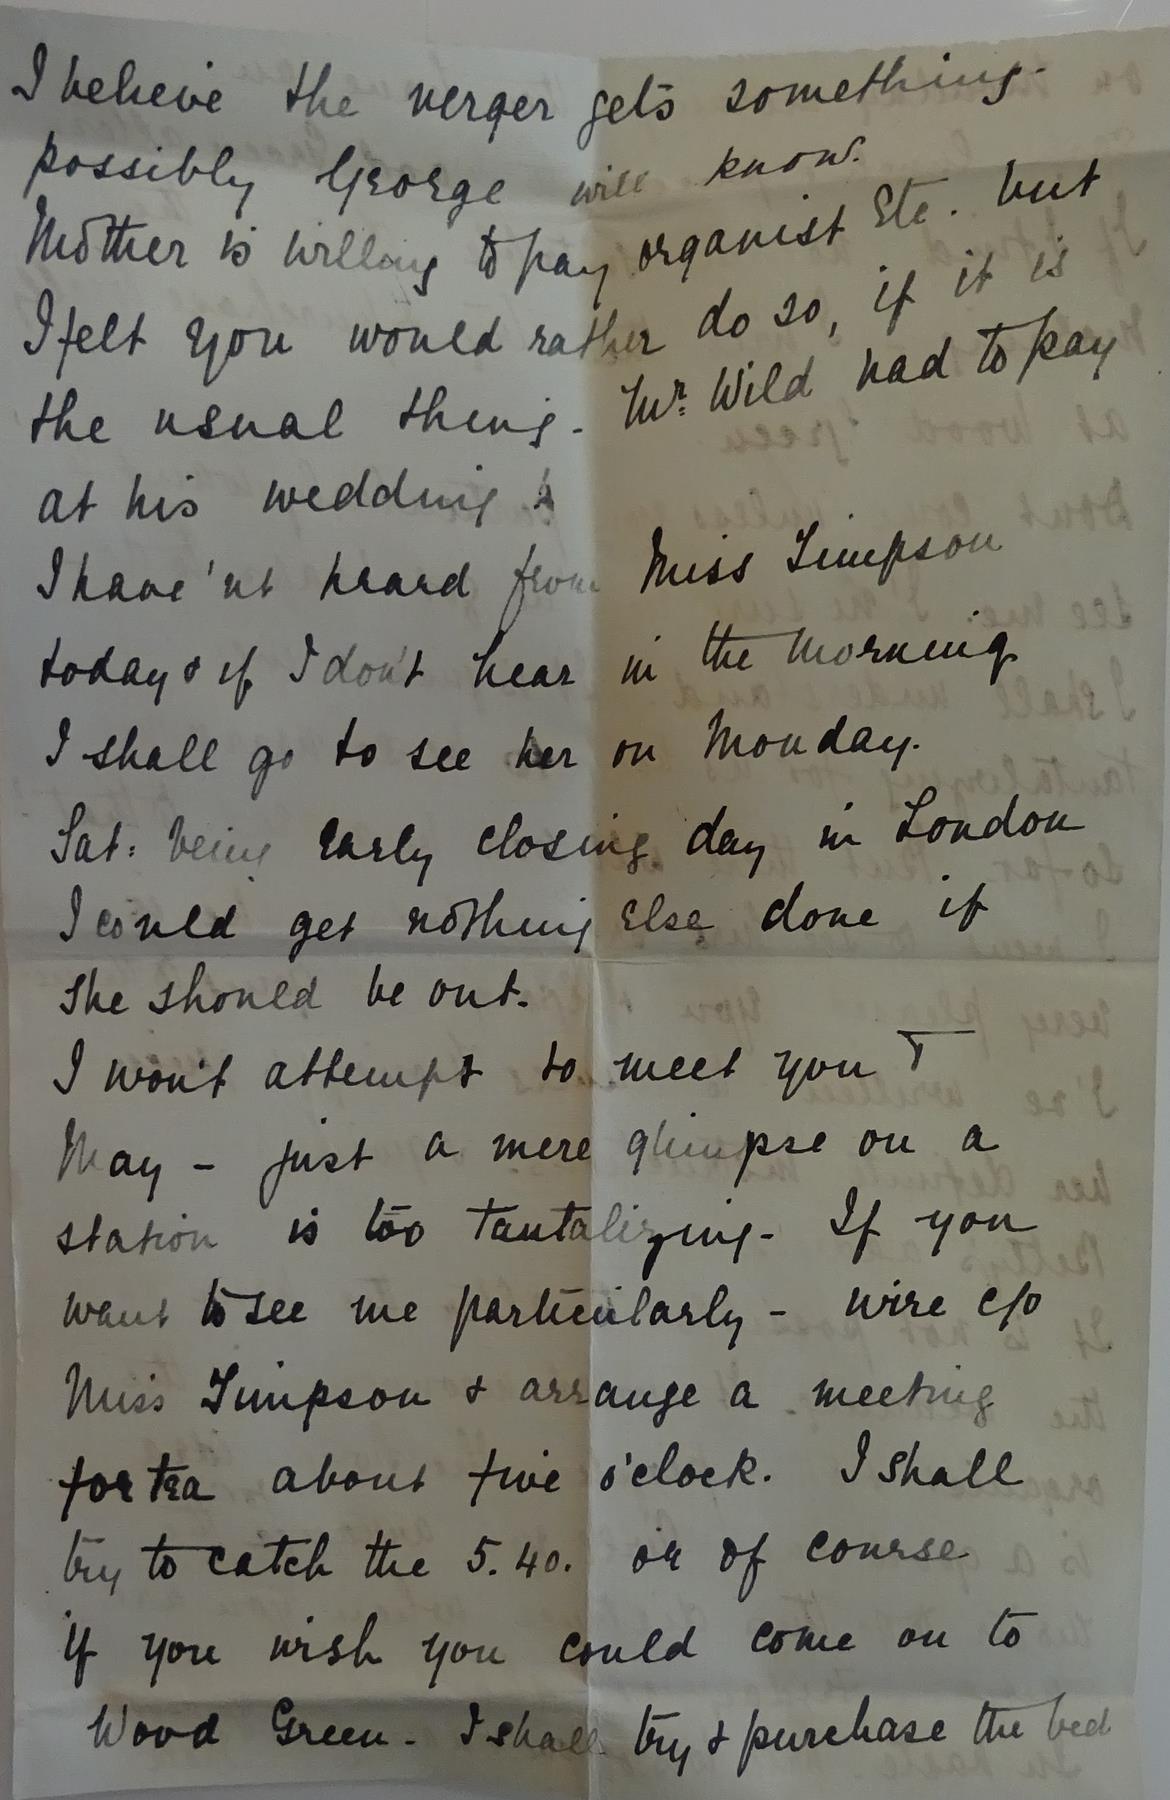 I believe the verger gets something -
possibly George will know.
Mother is willing to pay organist Etc. but
I felt you would rather do so, if it is
the usual thing - Mr. Wild had to pay
at his wedding
I have'nt heard from Miss Simpson
today & if I don't hear in the morning
I shall go to see her on Monday.
Sat: being Early closing day in London
I could get nothing Else done if
she should be out.
I won't attempt to meet you T
May - just a mere glimpse on a
station is too tantalizing - If you
want to see me particularly - wire c/o
Miss Simpson & arrange a meeting
for tea about five o'clock. I shall
try to catch the 5.40. or of course
if you wish you could come on to
Wood Green - I shall try & purchase the bed